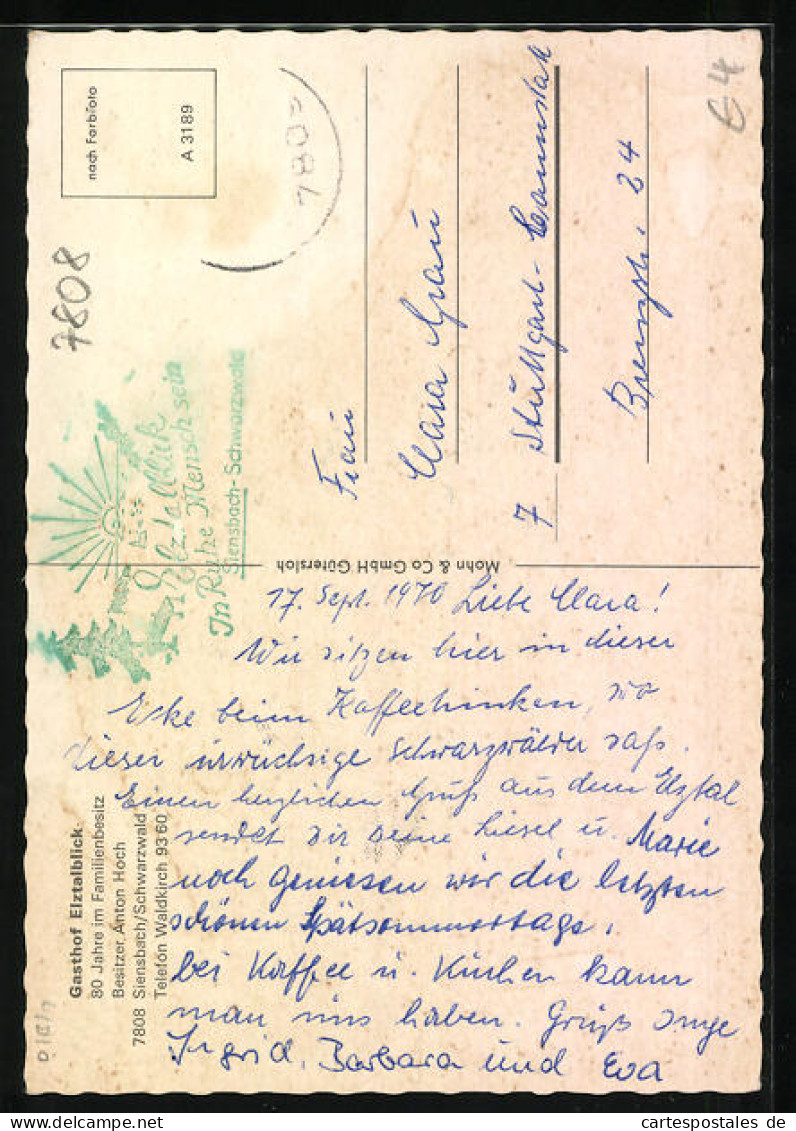 Gasthof Elztalblick
80 Jahre im Familienbesitz
Besitzer Anton Hoch
7808 Siensbach/Schwarzwald
Telefon Waldkirch 93 60
Elztalblick
In Ruhe Mensch sein
Siensbach-Schwarzwald
7808
nach Farbfoto
A 3189
780
€4
Mohn & Co GmbH Gütersloh
Frau
Clara Grau
7 Stuttgart-Cannstatt
Brenzstr. 24
17. Sept. 1970 Liebe Clara!
Wir sitzen hier in dieser
Ecke beim Kaffeetrinken, wo
dieser urwüchsige Schwarzwälder saß.
Einen herzlichen Gruß aus dem Elztal
sendet Dir Deine Liesel u. Marie
noch geniesen wir die letzten
schönen Spätsommertage,
bei Kaffee u. Kuchen kann
man uns haben. Gruß Inge
Ingrid, Barbara und Eva
cartespostales.de